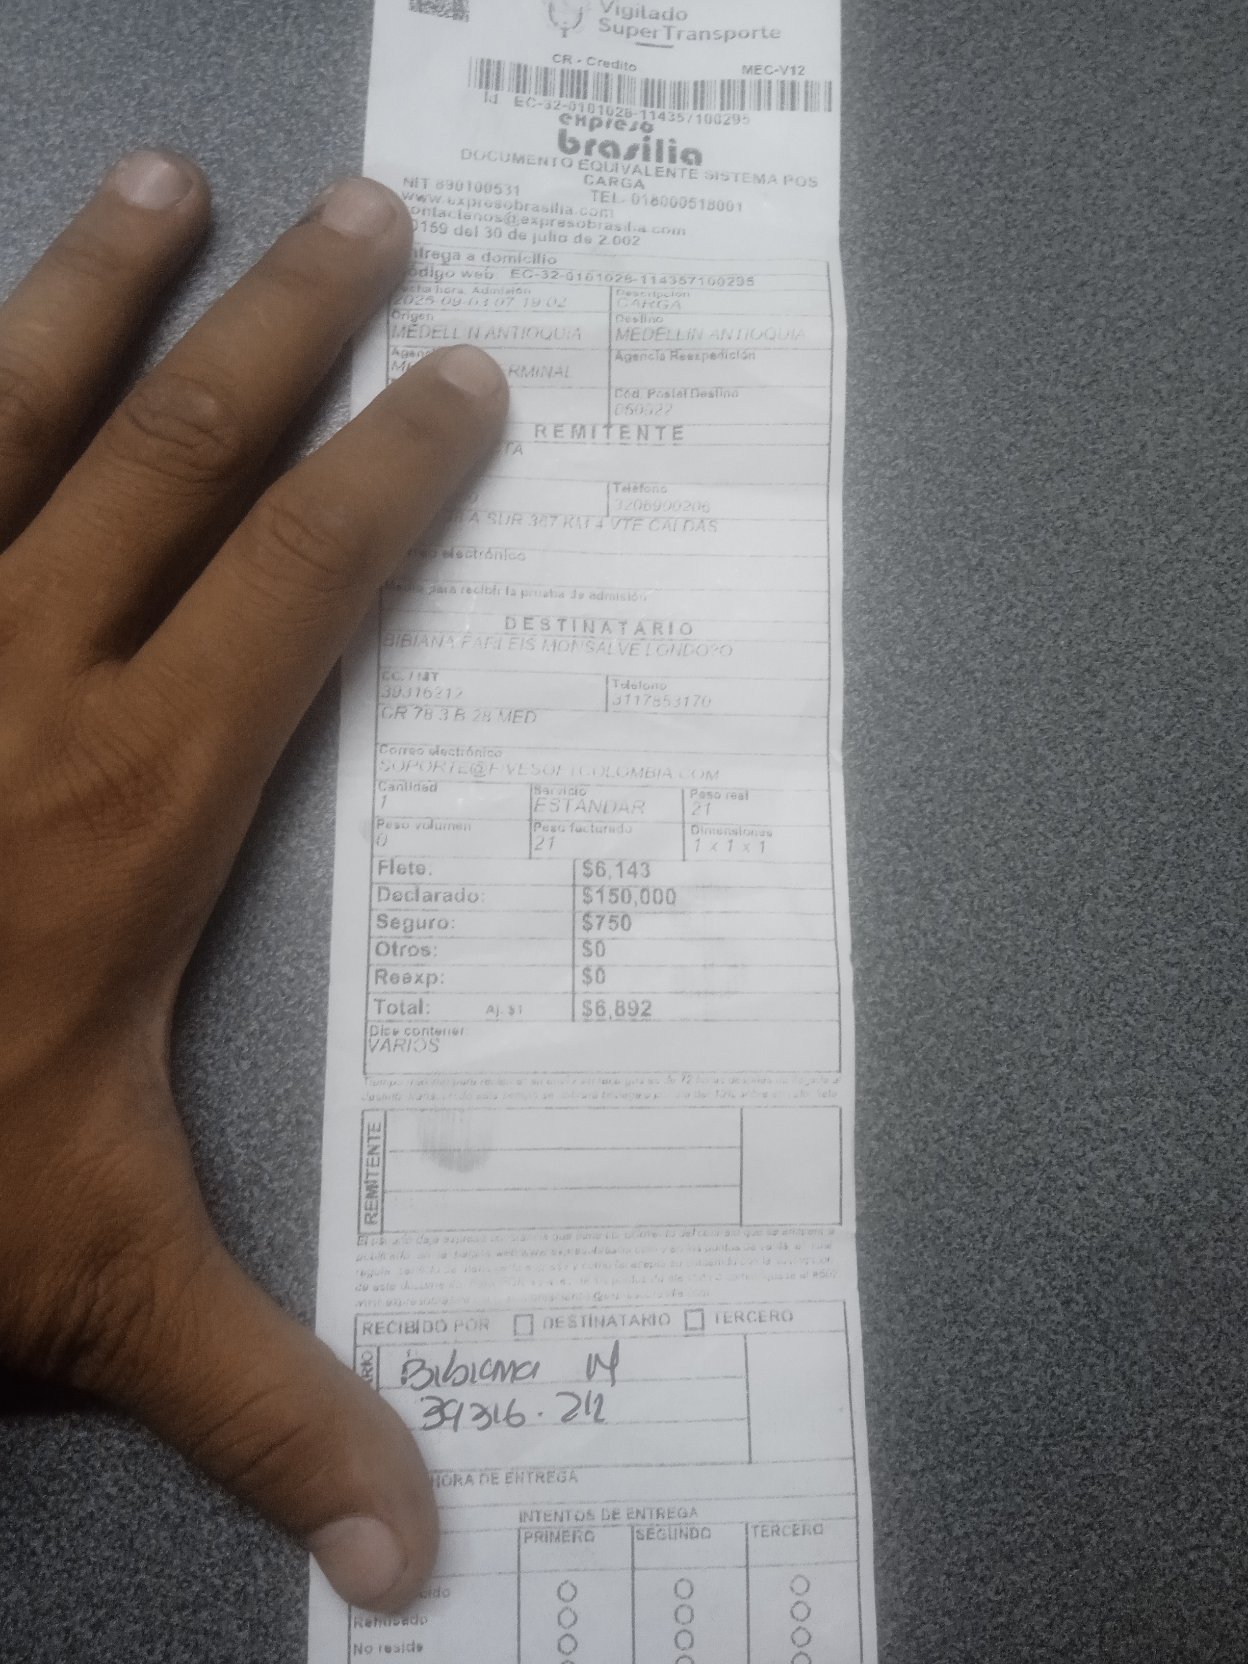 Vigilado
SuperTransporte
CR - Credito MEC-V12
Id. EC-32-0101028-114357100295
expreso
brasilia
DOCUMENTO EQUIVALENTE SISTEMA POS
CARGA
NIT 890100531 TEL- 018000518001
www.expresobrasilia.com
ontactenos@expresobrasilia.com
0159 del 30 de julio de 2.002
ntrega a domicilio
ódigo web EC-32-0101028-114357100295
hora. Admisión Descripción
2025-09-03 07:19:02 CARGA
Origen Destino
MEDELLIN ANTIOQUIA MEDELLIN ANTIOQUIA
Agen Agencia Reexpedición
RMINAL
Cód. Postal Destino
050027
REMITENTE
TA
Teléfono
3206900206
A SUR 367 KM 4 VTE CALDAS
electrónico
para recibir la prueba de admisión
DESTINATARIO
BIBIANA FARLEIS MONSALVE LONDO?O
CC. / NIT Teléfono
39316212 3117853170
CR 78 3 B 28 MED
Correo electrónico
SOPORTE@FIVESOFTCOLOMBIA.COM
Cantidad Servicio Peso real
1 ESTANDAR 21
Peso volumen Peso facturado Dimensiones
0 21 1 x 1 x 1
Flete: $6,143
Declarado: $150,000
Seguro: $750
Otros: $0
Reexp: $0
Total: Aj. $1 $6,892
Dice contener:
VARIOS
REMITENTE
RECIBIDO POR DESTINATARIO TERCERO
ARIO
Bibiana M
39316.212
HORA DE ENTREGA
INTENTOS DE ENTREGA
PRIMERO SEGUNDO TERCERO
cido
Rehusado
No reside